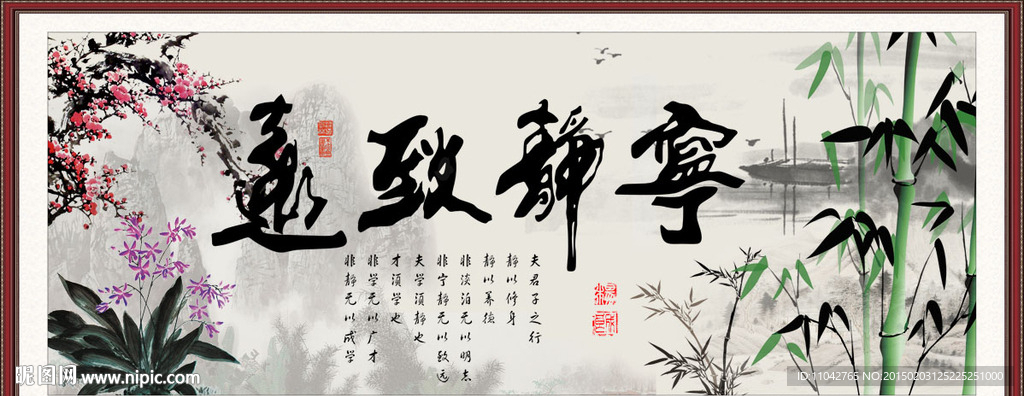 寧靜致遠
夫君子之行
靜以修身
靜以養德
非淡泊无以明志
非宁靜无以致远
夫学須靜也
才須学也
非学无以广才
非靜无以成学
昵图网 www.nipic.com
ID:11042765 NO:20150203125225251000